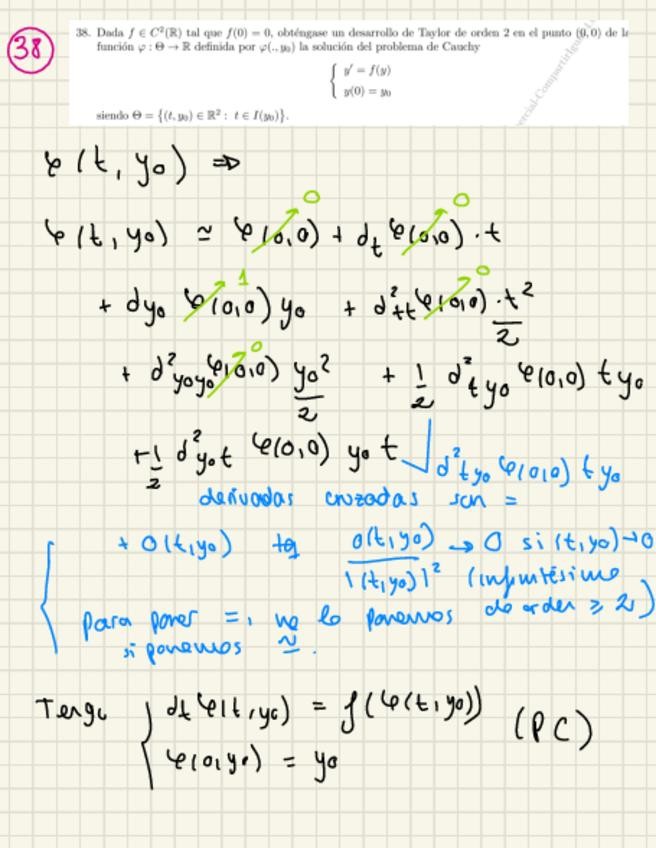 38
38. Dada f ∈ C²(ℝ) tal que f(0) = 0, obténgase un desarrollo de Taylor de orden 2 en el punto (0, 0) de la
función φ : Θ → ℝ definida por φ(., y₀) la solución del problema de Cauchy
{ y' = f(y)
y(0) = y₀
siendo Θ = {(t, y₀) ∈ ℝ² : t ∈ I(y₀)}.
φ(t, y₀) ⇒
φ(t, y₀) ≃ φ(0,0) → 0 + dₜ φ(0,0) → 0 · t
+ dy₀ φ(0,0) → 1 y₀ + d²ₜₜ φ(0,0) → 0 · t²/2
+ d²y₀y₀ φ(0,0) → 0 y₀²/2 + 1/2 d²ty₀ φ(0,0) t y₀
+ 1/2 d²y₀t φ(0,0) y₀ t d²ty₀ φ(0,0) t y₀
derivadas cruzadas son =
+ o(t,y₀) tq o(t,y₀)/|(t,y₀)|² → 0 si (t,y₀)→0
(infinitésimo de orden ≥ 2)
para poner =, no lo ponemos
si ponemos ≃.
Tengo { dt φ(t,y₀) = f(φ(t,y₀))
φ(0,y₀) = y₀ (PC)